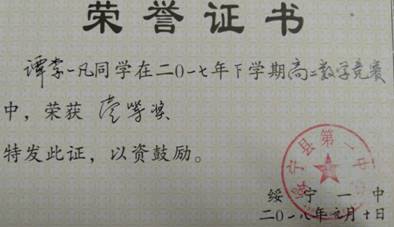 荣誉证书
谭李一凡同学在二〇一七年下学期高二数学竞赛
中，荣获 壹等奖
特发此证，以资鼓励。
绥宁县第一中
绥宁一中
二〇一八年元月十日